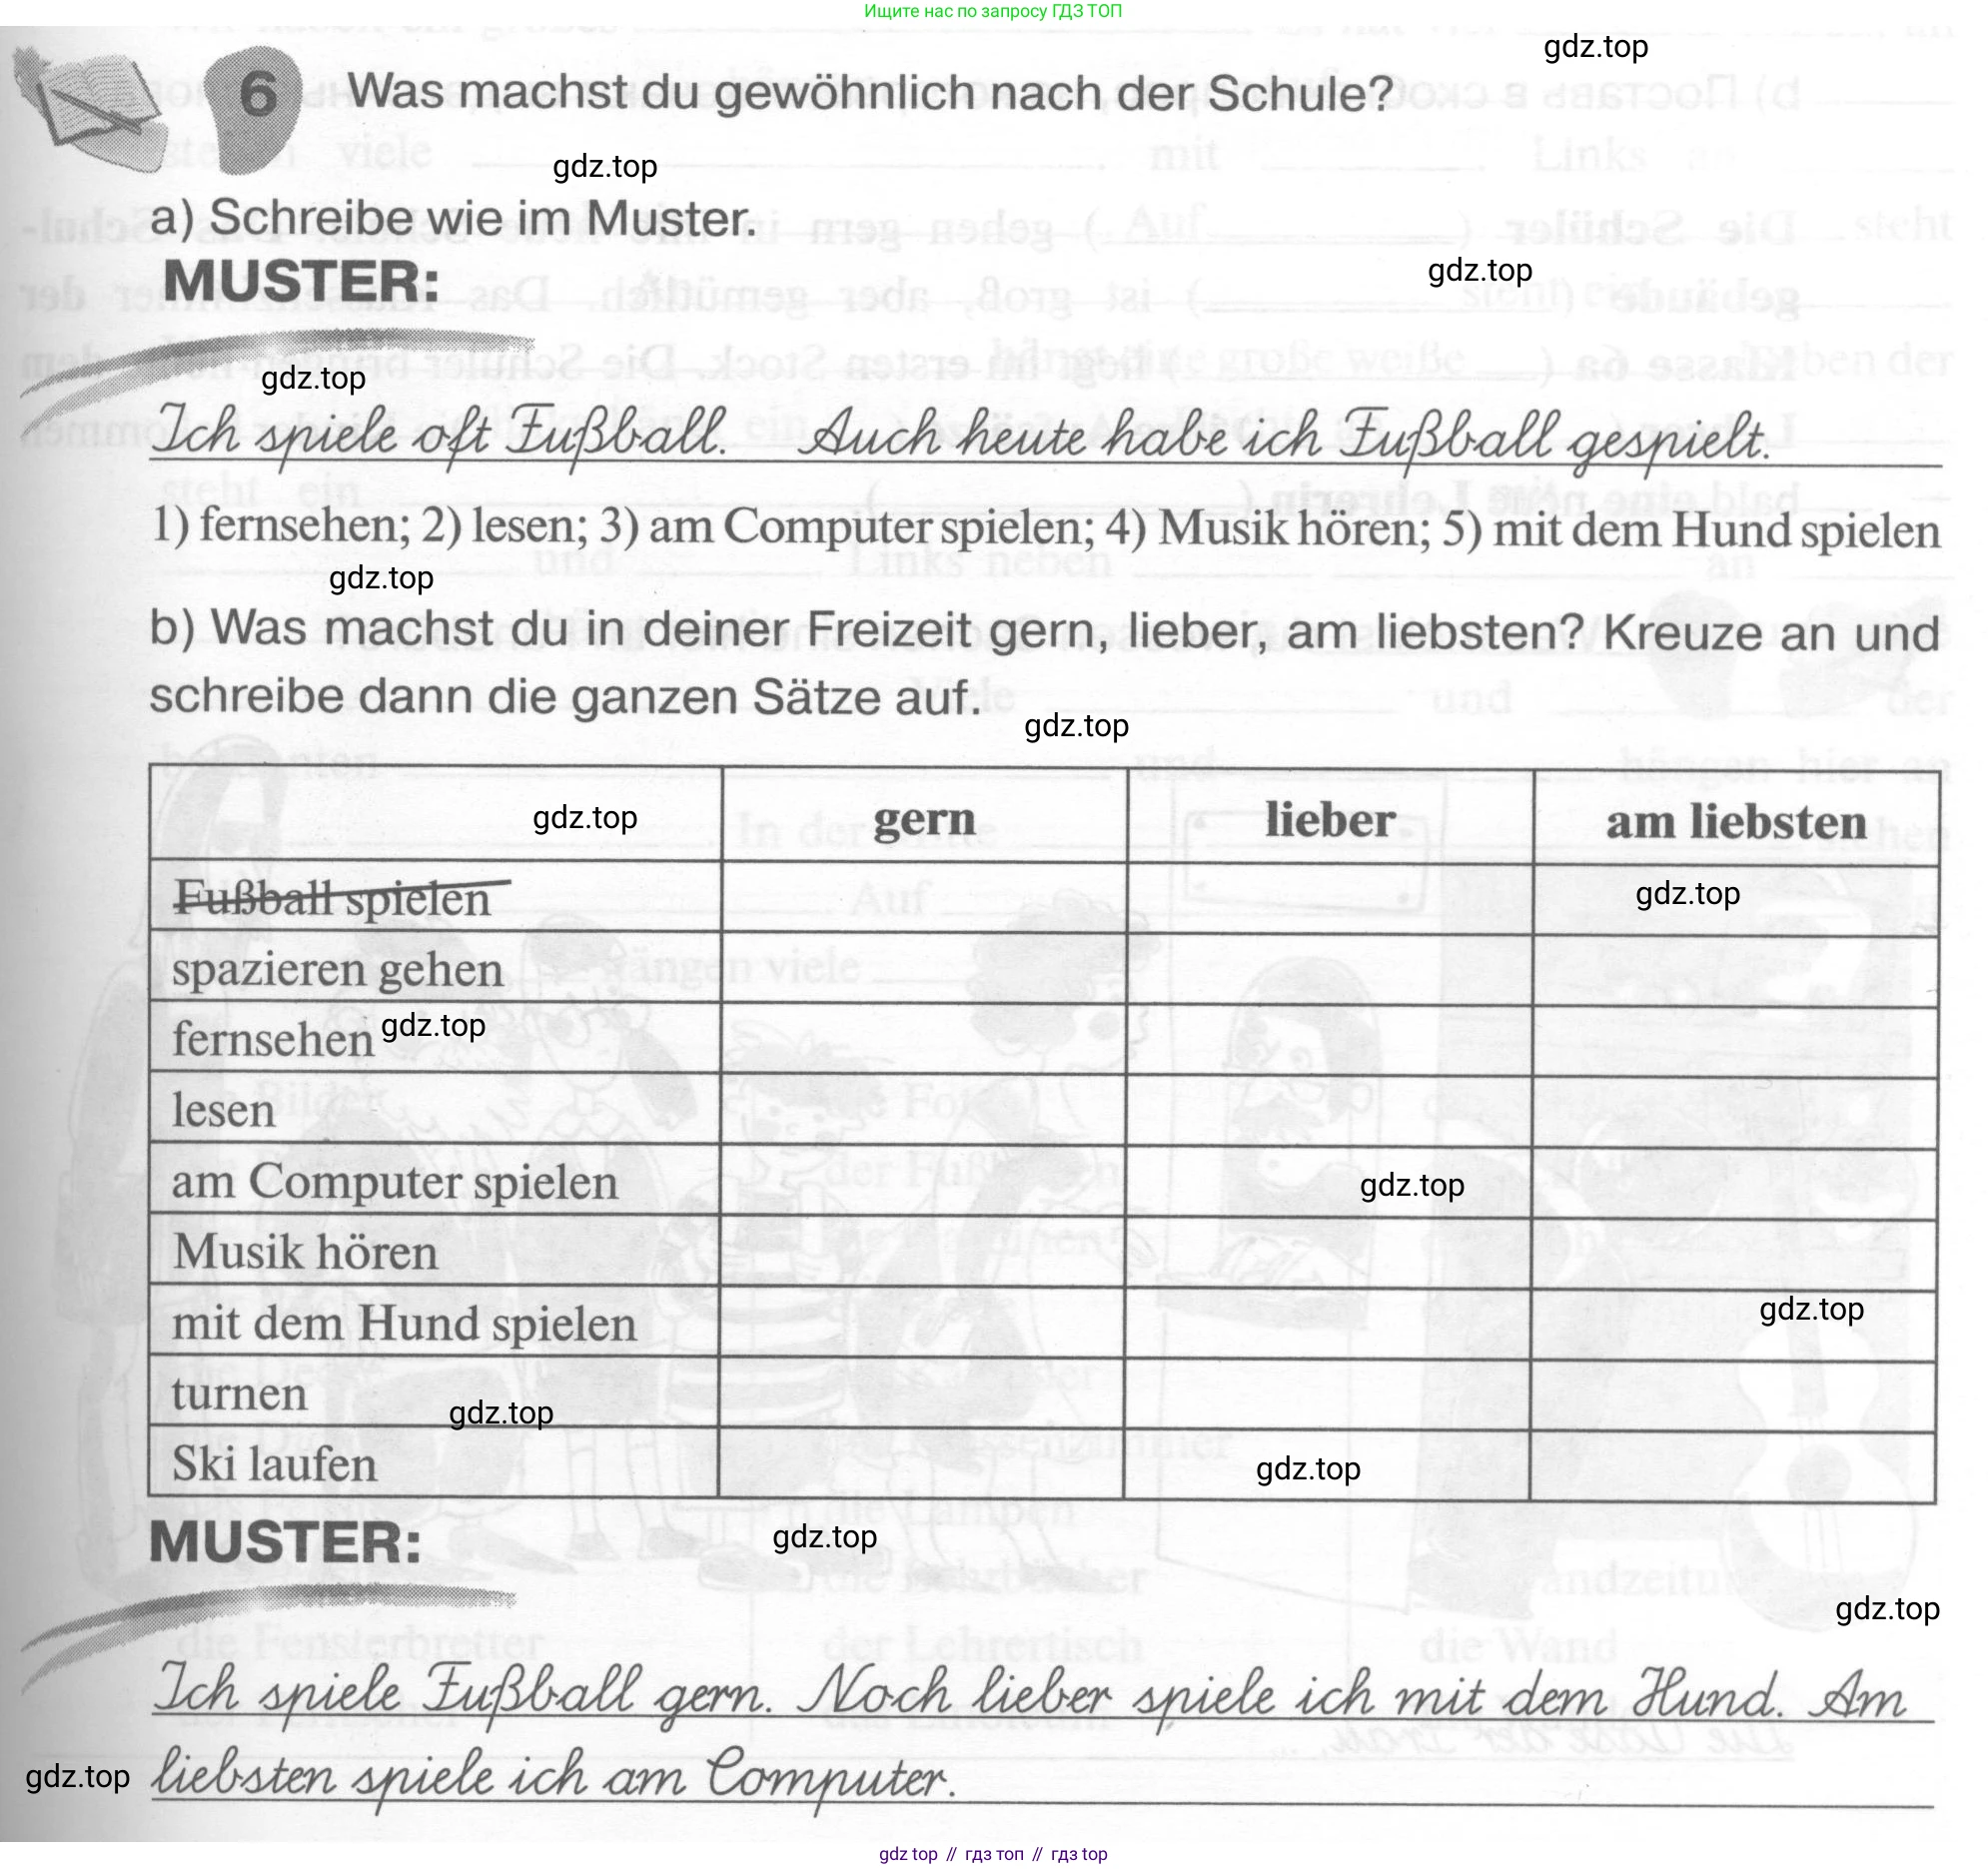 Ищите нас по запросу ГДЗ ТОП
gdz.top
6 Was machst du gewöhnlich nach der Schule?
gdz.top
a) Schreibe wie im Muster.
gdz.top
MUSTER:
gdz.top
Ich spiele oft Fußball. Auch heute habe ich Fußball gespielt.
1) fernsehen; 2) lesen; 3) am Computer spielen; 4) Musik hören; 5) mit dem Hund spielen
gdz.top
b) Was machst du in deiner Freizeit gern, lieber, am liebsten? Kreuze an und
schreibe dann die ganzen Sätze auf.
gdz.top
gdz.top gern lieber am liebsten
Fußball spielen gdz.top
spazieren gehen
fernsehen gdz.top
lesen
am Computer spielen gdz.top
Musik hören
mit dem Hund spielen gdz.top
turnen gdz.top
Ski laufen gdz.top
MUSTER:
gdz.top
gdz.top
Ich spiele Fußball gern. Noch lieber spiele ich mit dem Hund. Am
gdz.top liebsten spiele ich am Computer.
gdz top // гдз топ // гдз top